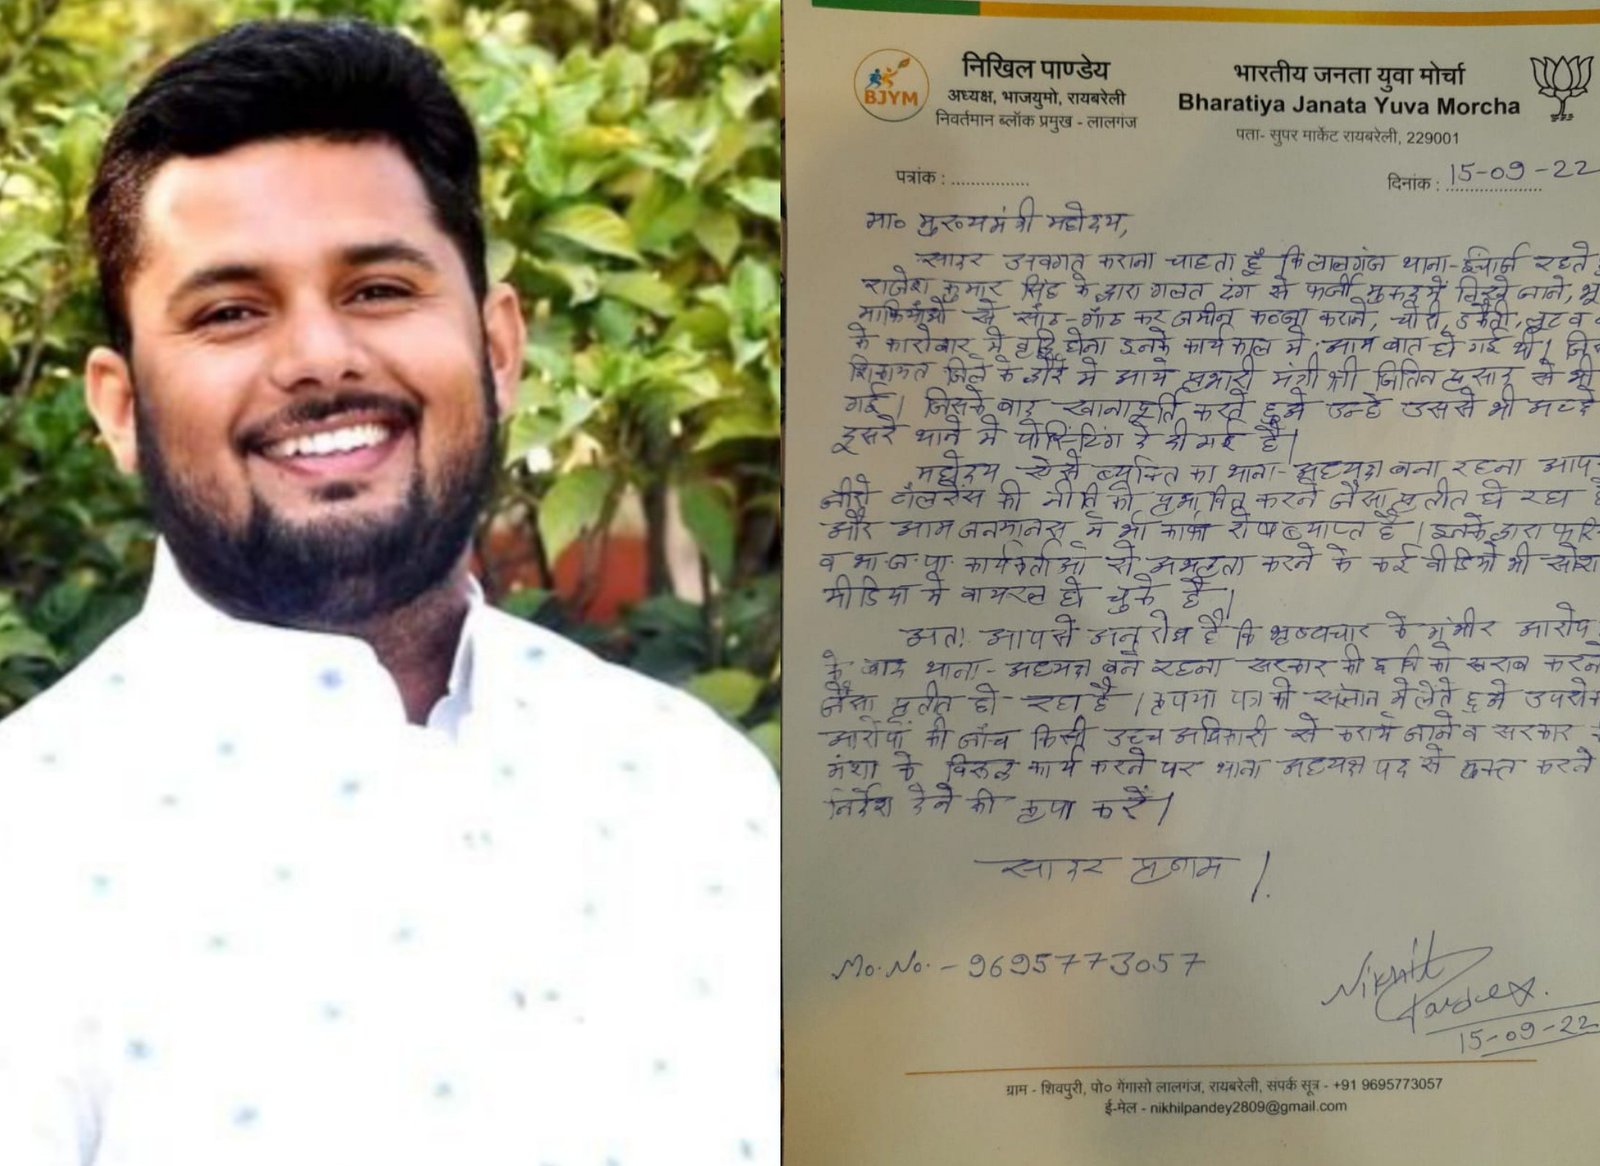 BJYM
निखिल पाण्डेय
अध्यक्ष, भाजयुमो, रायबरेली
निवर्तमान ब्लॉक प्रमुख - लालगंज
भारतीय जनता युवा मोर्चा
Bharatiya Janata Yuva Morcha
पता- सुपर मार्केट रायबरेली, 229001
पत्रांक : ...............
दिनांक : 15-09-22
मा० मुख्यमंत्री महोदय,
सादर अवगत कराना चाहता हूँ कि लालगंज थाना-ईंचार्ज रहते
राजेश कुमार सिंह के द्वारा गलत ढंग से फर्जी मुकदमें लिखे जाने, भू
माफियाओं से साँठ-गाँठ कर जमीन कब्जा कराने, चोरी, डकैती, लूट व
के कारोबार में वृद्धि होना इनके कार्यकाल में आम बात हो गई थी।
शिकायत जिले के दौरे में आये प्रभारी मंत्री श्री जितिन प्रसाद से भी
गई। जिसके बाद खानापूर्ति करते हुये उन्हें उससे भी अच्छे
दूसरे थाने में पोस्टिंग दे दी गई है।
महोदय ऐसे व्यक्ति का थाना-अध्यक्ष बना रहना आप
जीरो टॉलरेंस की नीति को प्रभावित करने जैसा प्रतीत हो रहा
और आम जनमानस में भी काफी रोष व्याप्त है। इनके द्वारा
व भा.ज.पा. कार्यकर्ताओं से अभद्रता करने के कई वीडियो भी
मीडिया में वायरल हो चुके हैं।
अतः आपसे अनुरोध है कि भ्रष्टाचार के गंभीर आरोप
के बाद थाना-अध्यक्ष बने रहना सरकार की छवि को खराब करने
जैसा प्रतीत हो रहा है। कृपया पत्र को संज्ञान में लेते हुये
आरोपों की जाँच किसी उच्च अधिकारी से कराये जाने व सरकार
मंशा के विरूद्ध कार्य करने पर थाना अध्यक्ष पद से मुक्त करने
निर्देश देने की कृपा करें।
सादर प्रणाम।
Mo. No. - 9695773057
Nikhil
Pandey
15-09-22
ग्राम - शिवपुरी, पो० गेंगासो लालगंज, रायबरेली, संपर्क सूत्र - +91 9695773057
ई-मेल - nikhilpandey2809@gmail.com